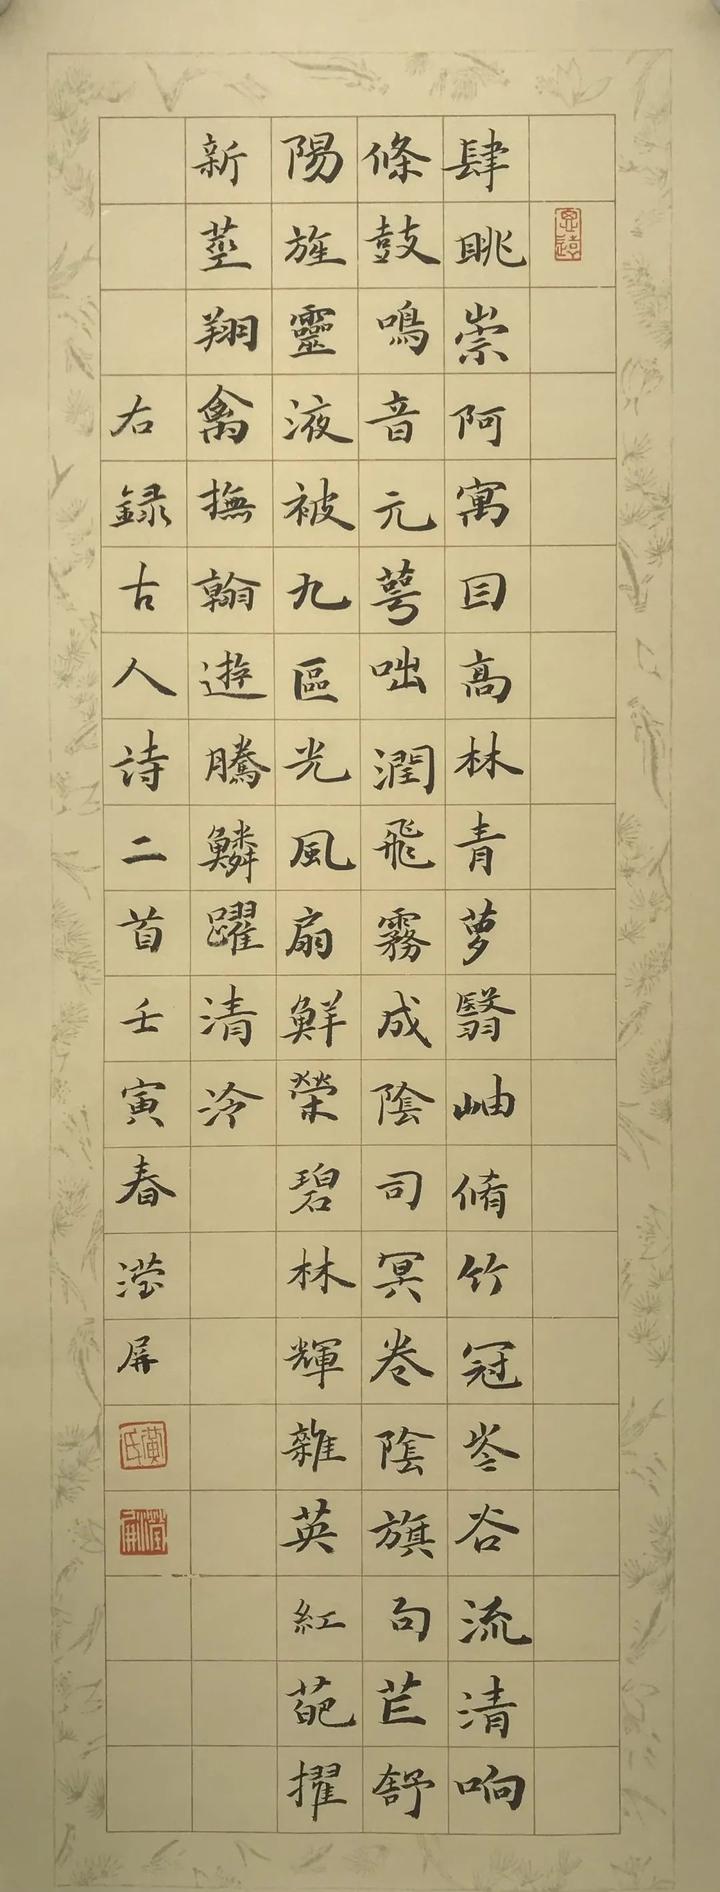 肆眺崇阿寓目高林青萝翳岫脩竹冠岑谷流清响
條鼓鳴音元萼咄潤飛霧成陰司冥卷陰旗句芒舒
陽旌靈液被九區光風扇鮮榮碧林輝雜英紅葩擢
新莖翔禽撫翰遊騰鱗躍清泠
右録古人詩二首壬寅春瀅屏
黄氏
瀅屏